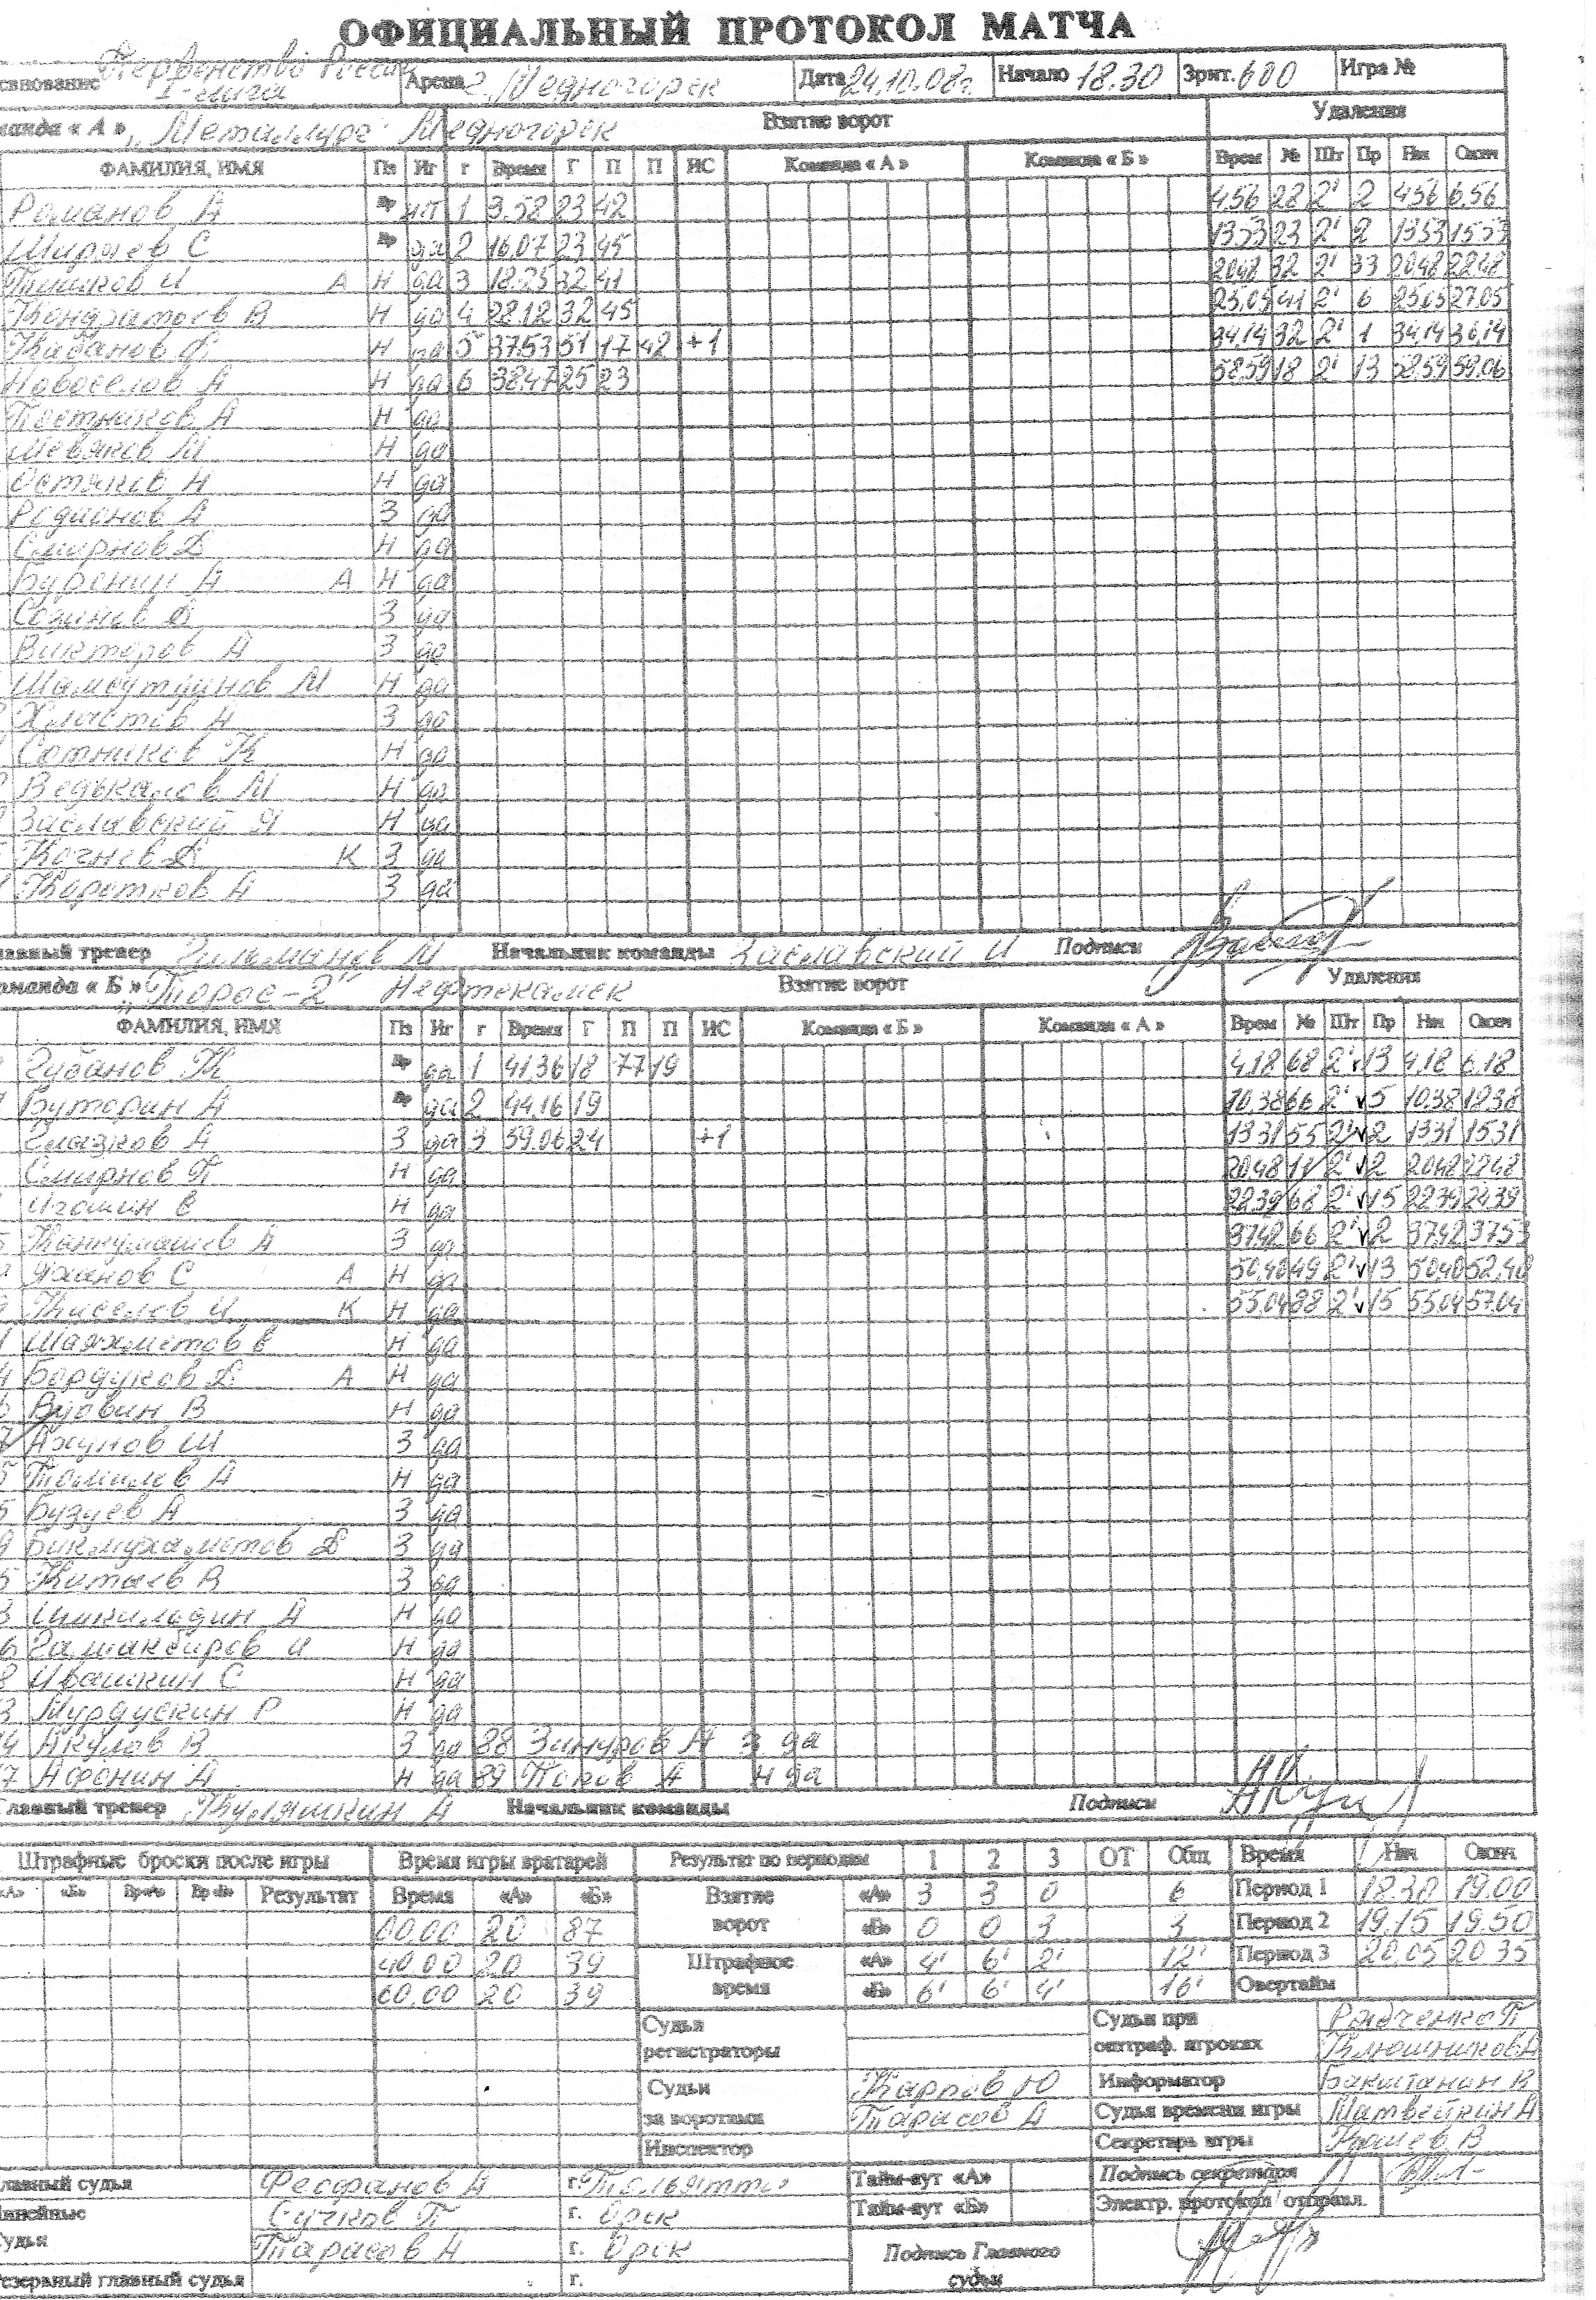 ОФИЦИАЛЬНЫЙ ПРОТОКОЛ МАТЧА
Первенство России
I-лига
Арена г. Медногорск Дата 24.10.08г. Начало 18.30 Зрит. 600 Игра №
«А» „Металлург" Медногорск Взятие ворот Удаления
ФАМИЛИЯ, ИМЯ Пз Иг г Время Г П П ИС Команда «А» Команда «Б» Врем № Шт Пр Нач Оконч
Романов А Вр 1 3.58 23 42 4.56 28 2' 2 4.56 6.56
Ширяев С Вр да 2 16.07 23 45 13.53 23 2' 2 13.53 15.53
А Н да 3 18.25 32 41 20.48 32 2' 33 20.48 22.48
Кондратьев В Н да 4 28.12 32 45 25.05 41 2' 6 25.05 27.05
Кабанов Н да 5 37.53 51 17 42 +1 34.14 32 2' 1 34.14 36.14
Новоселов А Н да 6 38.47 25 23 58.59 18 2' 13 58.59 59.06
Постников А Н да
Шевяков М Н да
Остяков Н Н да
Родионов А З да
Смирнов Д Н да
Буренин А А Н да
Созинов З да
Викторов А З да
Шамсутдинов М Н да
Хлыстов Н З да
Сотников К Н да
Ведькалов М Н да
Заславский Я Н да
Кочнев Д К З да
Коротков А З да
тренер Гильманов М Начальник команды Заславский И Подписи
«Б» „Торос-2" Нефтекамск Взятие ворот Удаления
ФАМИЛИЯ, ИМЯ Пз Иг г Время Г П П ИС Команда «Б» Команда «А» Врем № Шт Пр Нач Оконч
Губанов К Вр да 1 41.36 18 77 19 4.18 68 2' 13 4.18 6.18
Буторин А Вр да 2 44.16 19 10.38 66 2' 5 10.38 12.38
Глазков А З да 3 59.06 24 +1 13.31 55 2' 2 13.31 15.31
Смирнов П Н да 20.48 11 2' 2 20.48 22.48
Игошин Е Н да 22.39 68 2' 15 22.39 24.39
А З да 37.42 66 2' 2 37.42 37.53
Яханов С А Н да 50.40 49 2' 13 50.40 52.40
Киселев И К Н да 55.04 88 2' 15 55.04 57.04
Шаяхметов Е Н да
Бордуков Д А Н да
Вдовин В Н да
Ахунов Ш З да
Томилов А Н да
Бузуев А З да
Бикмухаметов Д З да
Китаев В З да
А Н да
Галиакбиров И Н да
Ивашкин С Н да
Мурдускин Р Н да
Акулов В З да 88 Зинуров А З да
Афонин А Н да 89 Попов А Н да
Главный тренер Куляшкин А Начальник команды Подписи
Штрафные броски после игры Время игры вратарей Результат по периодам 1 2 3 ОТ Общ Время Нач Оконч
«А» «Б» Вр «А» Вр «Б» Результат Время «А» «Б» Взятие ворот «А» 3 3 0 6 Период 1 18.30 19.00
00.00 20 87 «Б» 0 0 3 3 Период 2 19.15 19.50
40.00 20 39 Штрафное время «А» 4' 6' 2' 12' Период 3 20.05 20.35
60.00 20 39 «Б» 6' 6' 4' 16' Овертайм
Судьи регистраторы Судьи при оштраф. игроках Рябченко П
Клюшников А
Судьи за воротами Карпов Ю Информатор Бакштанин В
Тарасов А Судья времени игры Матвейкин А
Инспектор Секретарь игры В
судья Феофанов А г. Тольятти Тайм-аут «А» Подпись секретаря
Сучков П г. Орск Тайм-аут «Б» Электр. протокол отправл.
Тарасов А г. Орск Подпись Главного судьи
главный судья г.